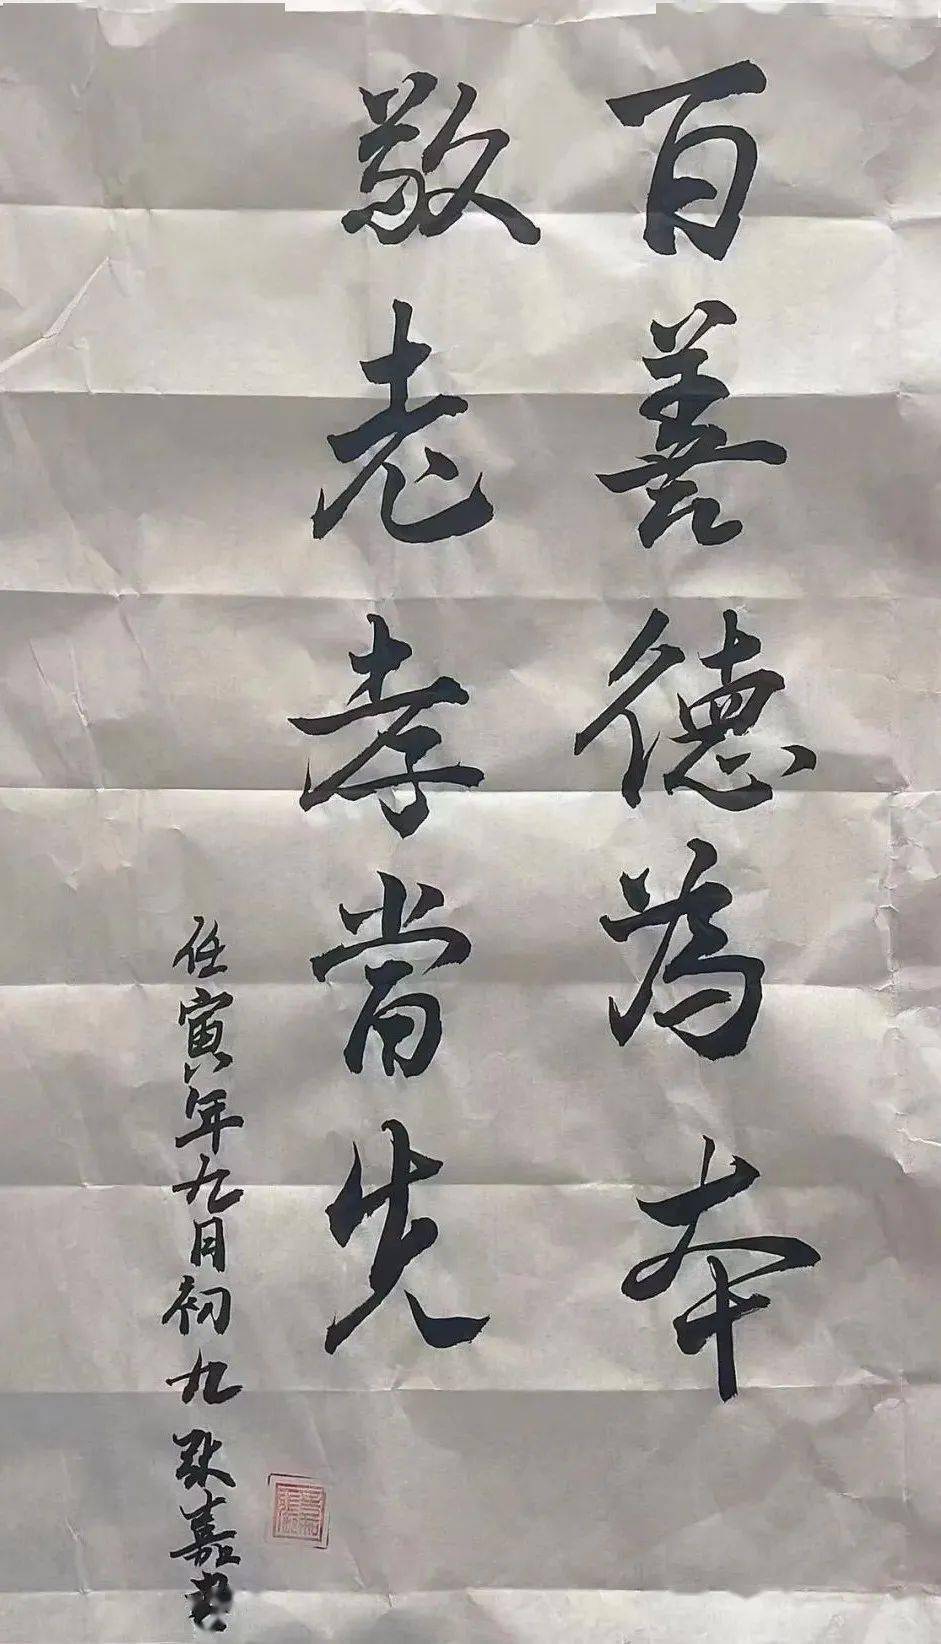 百善德為本
敬老孝當先
任寅年九月初九 嘉